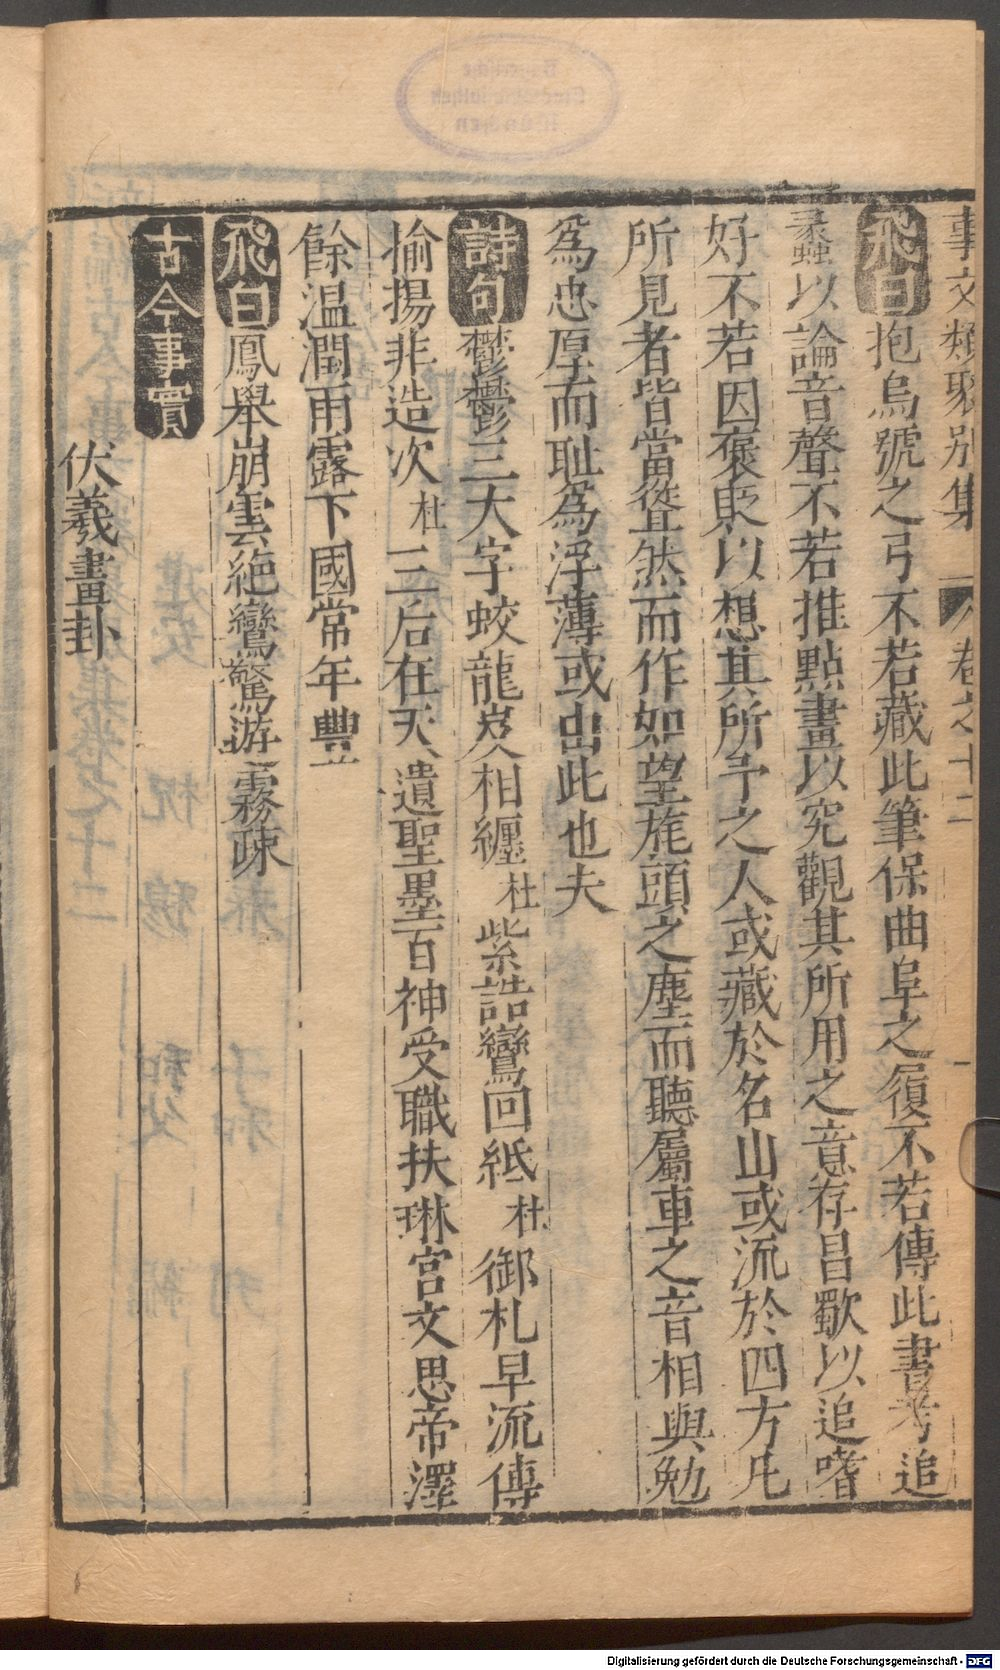 事文類聚別集 卷之十二
飛白抱烏號之弓不若藏此筆保曲阜之履不若傳此書考追
蠡以論音聲不若推點畫以究觀其所用之意存昌歜以追嗜
好不若因褒貶以想其所予之人或藏於名山或流於四方凡
所見者皆當聳然而作如望旄頭之塵而聽屬車之音相與勉
為忠厚而耻為浮薄或出此也夫
詩句鬱鬱三大字蛟龍岌相纏杜紫誥鸞回紙杜御札早流傳
揄揚非造次杜三后在天遺聖墨百神受職扶琳宮文思帝澤
餘溫潤雨露下國常年豐
飛白鳳舉崩雲絶鸞驚游霧疎
古今事實
伏羲畫卦
Digitalisierung gefördert durch die Deutsche Forschungsgemeinschaft - DFG